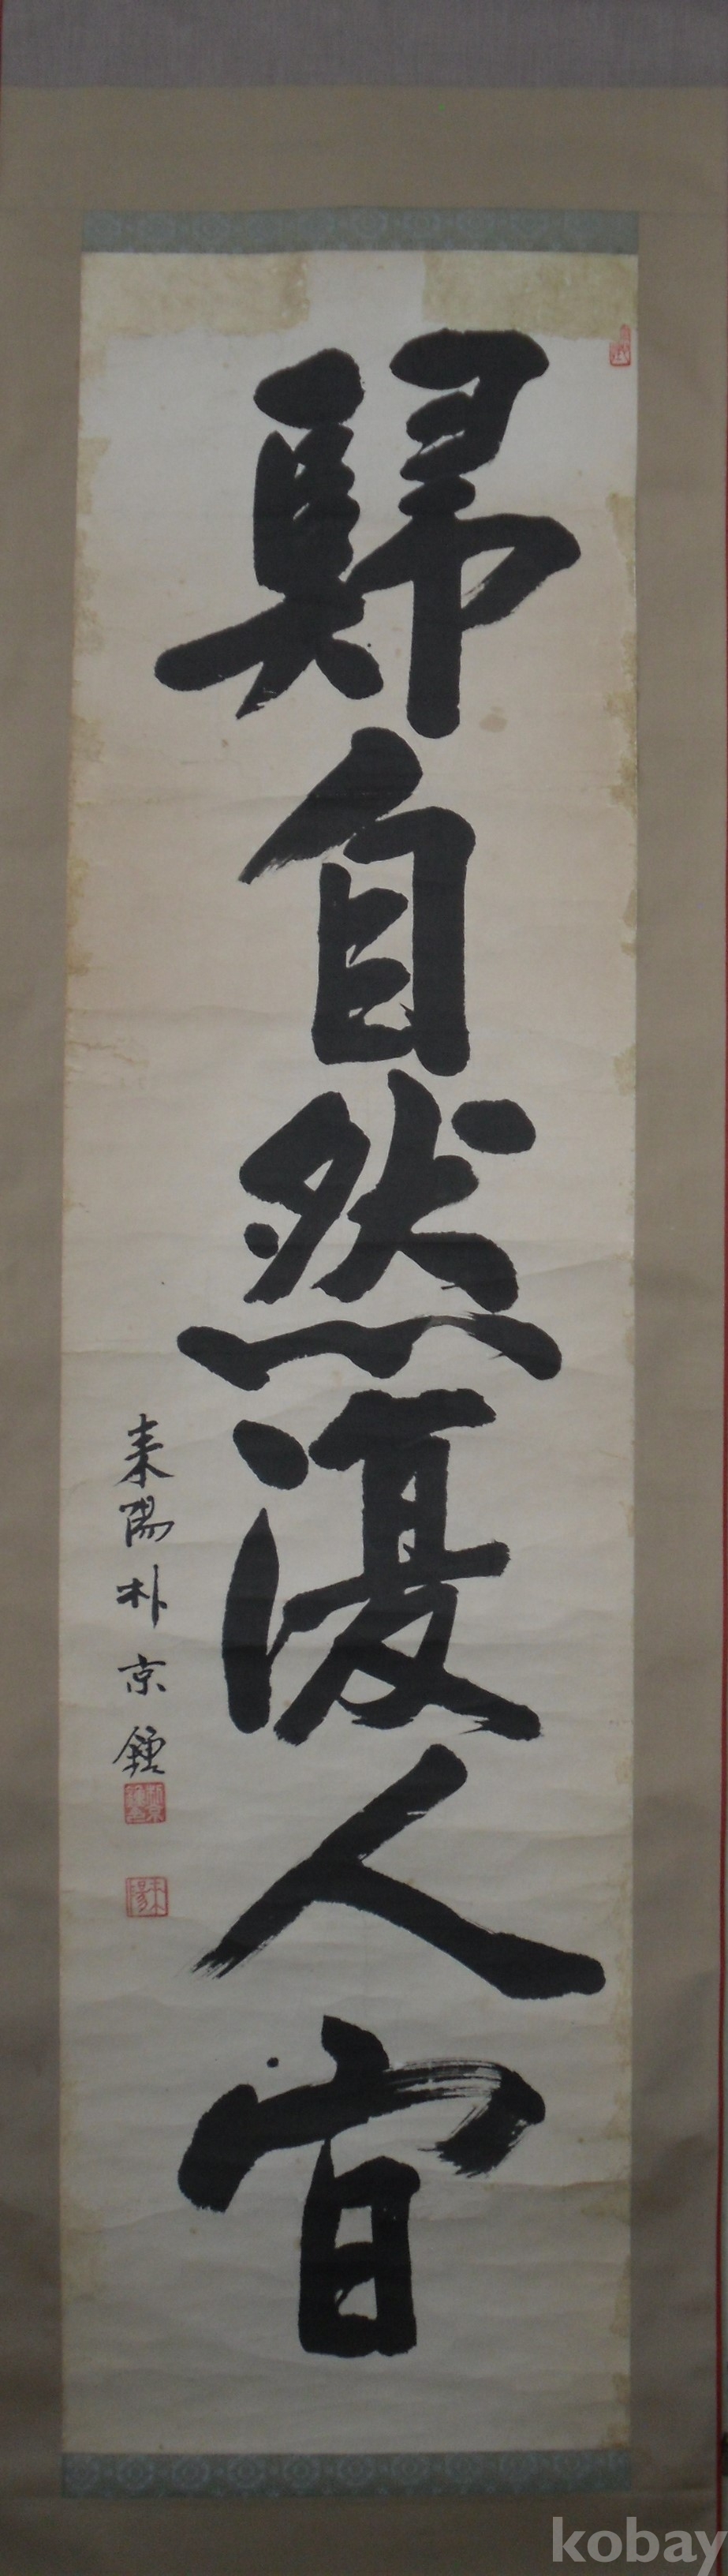 歸自然復人宜
耒陽朴京鍾
kobay